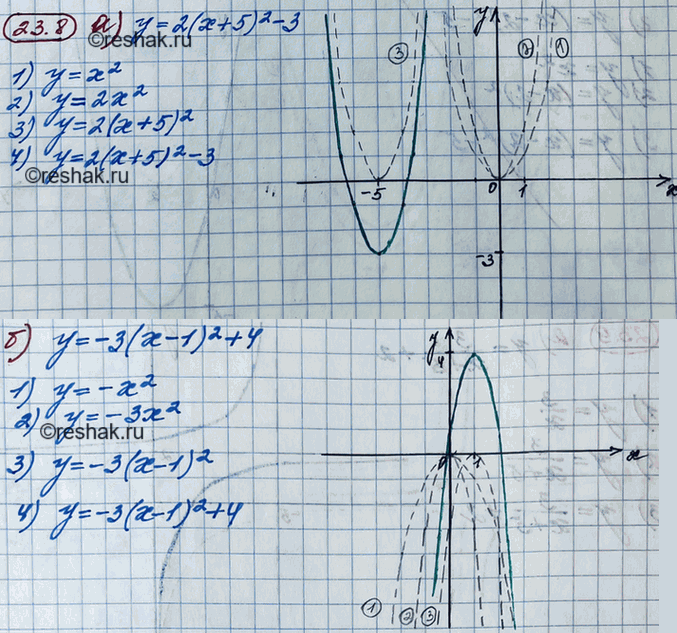 23.8 а) y=2(x+5)²-3
©reshak.ru
1) y=x²
2) y=2x²
3) y=2(x+5)²
4) y=2(x+5)²-3
©reshak.ru
y
③ ② ①
-5 0 1 x
-3
б) y=-3(x-1)²+4
1) y=-x²
2) y=-3x²
©reshak.ru
3) y=-3(x-1)²
4) y=-3(x-1)²+4
y
4
0 1 x
① ② ③